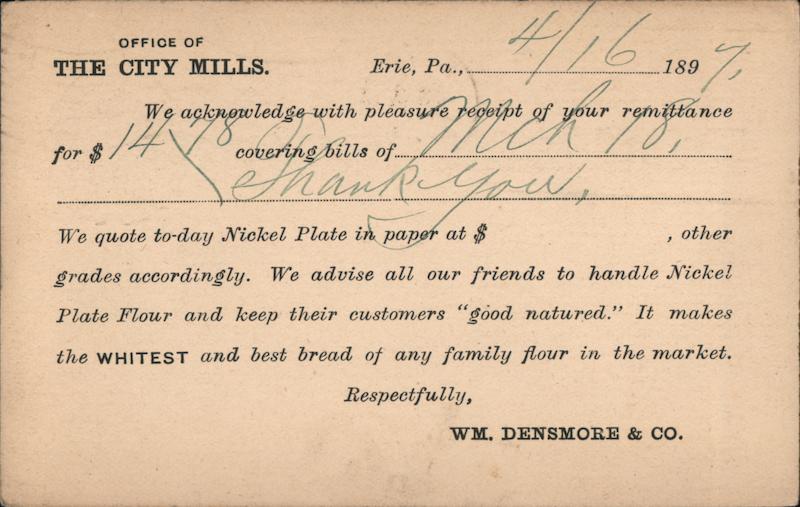 OFFICE OF
THE CITY MILLS.
Erie, Pa., 4/16 1897,
We acknowledge with pleasure receipt of your remittance
for $ 14 78 covering bills of Mch 18,
Thank You,
We quote to-day Nickel Plate in paper at $ , other
grades accordingly. We advise all our friends to handle Nickel
Plate Flour and keep their customers "good natured." It makes
the WHITEST and best bread of any family flour in the market.
Respectfully,
WM. DENSMORE & CO.